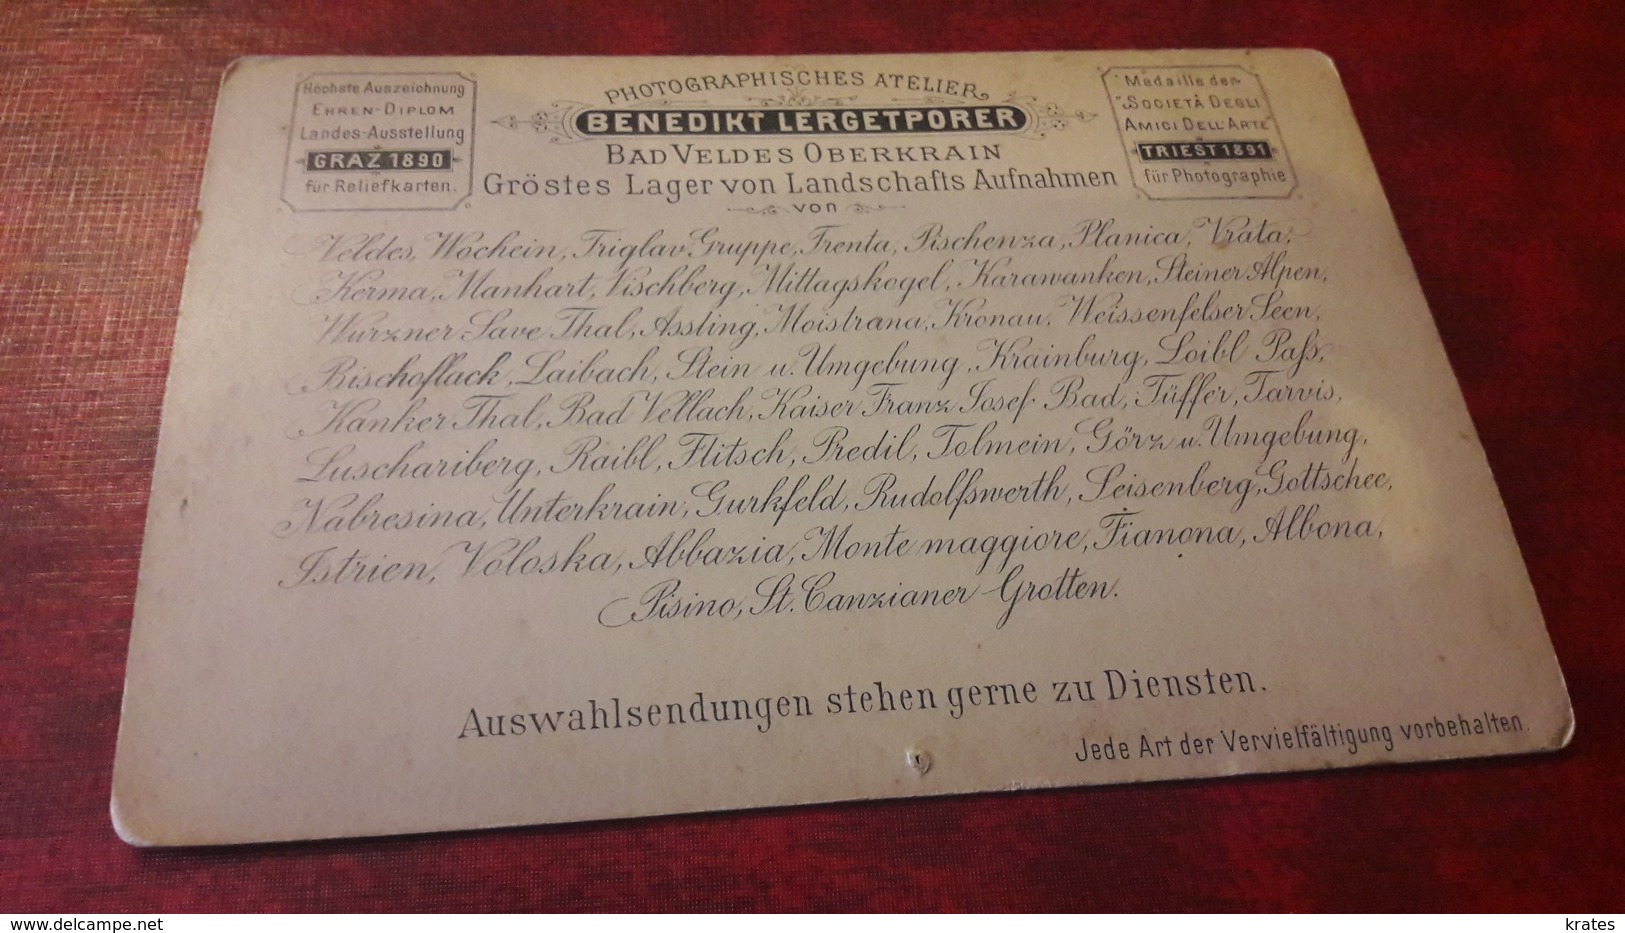 Höchste Auszeichnung
Ehren-Diplom
Landes-Ausstellung
GRAZ 1890
für Reliefkarten.
PHOTOGRAPHISCHES ATELIER
BENEDIKT LERGETPORER
BAD VELDES OBERKRAIN
Gröstes Lager von Landschafts Aufnahmen
von
Medaille der
"Società Degli
Amici Dell'Arte"
TRIEST 1891
für Photographie
Veldes, Wochein, Triglav Gruppe, Trenta, Pischenza, Planica, Vrata,
Kerma, Manhart, Vischberg, Mittagskogel, Karawanken, Steiner Alpen,
Wurzner-Save Thal, Assling, Moistrana, Kronau, Weissenfelser Seen,
Bischoflack, Laibach, Stein u. Umgebung, Krainburg, Loibl Paß,
Kanker Thal, Bad Vellach, Kaiser Franz Josef Bad, Tüffer, Tarvis,
Luschariberg, Raibl, Flitsch, Predil, Tolmein, Görz u. Umgebung,
Nabresina, Unterkrain, Gurkfeld, Rudolfswerth, Seisenberg, Gottschee,
Istrien, Voloska, Abbazia, Monte maggiore, Fianona, Albona,
Pisino, St. Canzianer-Grotten.
Auswahlsendungen stehen gerne zu Diensten.
Jede Art der Vervielfältigung vorbehalten.
delcampe.net
krates